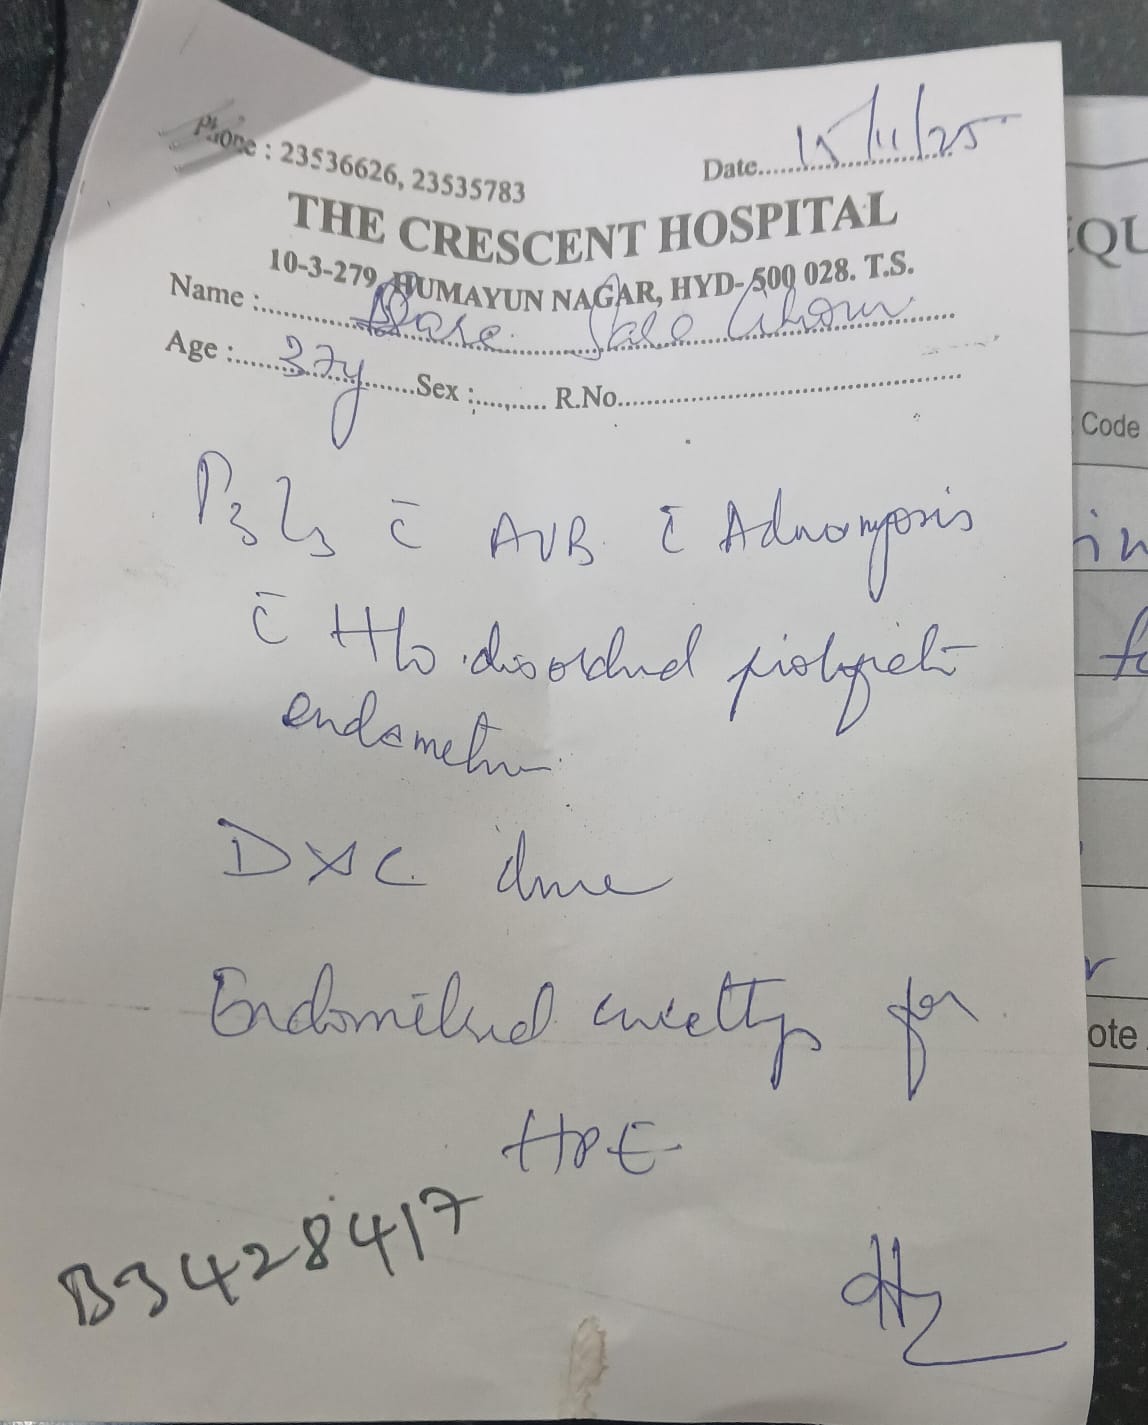 Phone : 23536626, 23535783
Date..... 15/11/25
THE CRESCENT HOSPITAL
10-3-279, HUMAYUN NAGAR, HYD-500 028. T.S.
Name :
Age : 37y Sex : R.No.
P3L3 c̄ AUB c̄ Adnomyosis
c̄ H/o disordered
endometri
D&C done
Endometrial curettings for
HPE
B3428417
QU
Code
in
ote